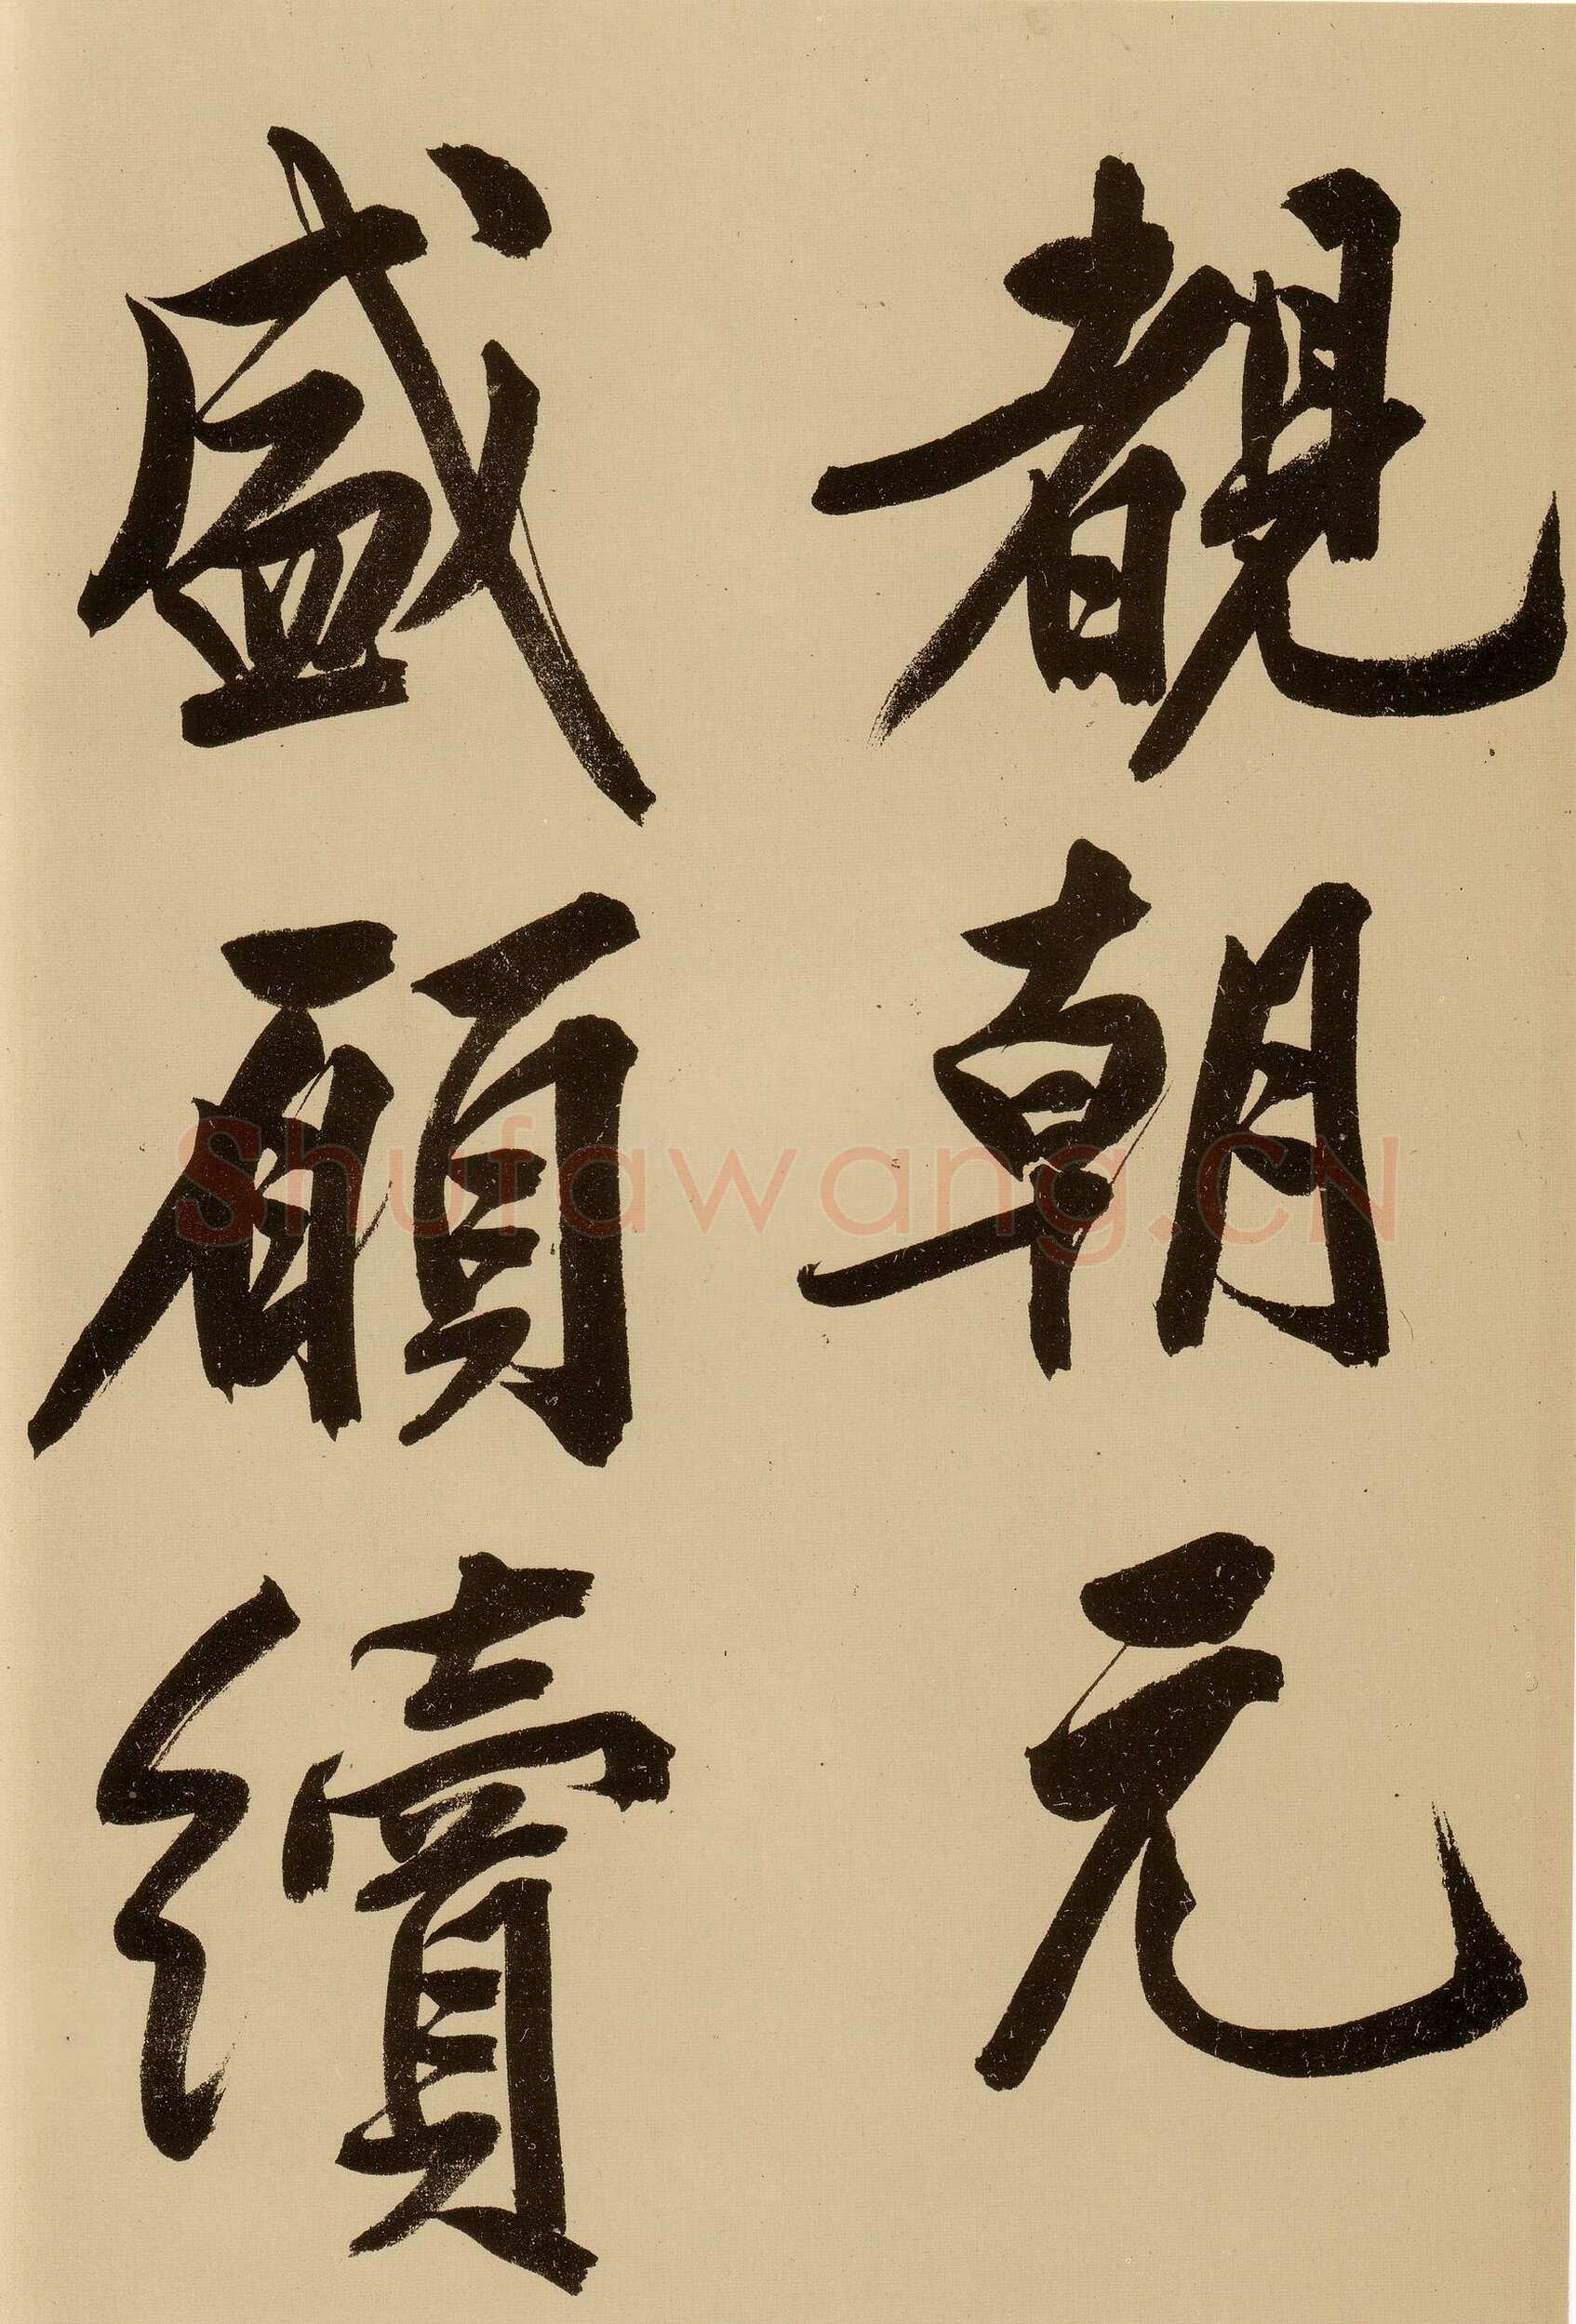 覩朝元
盛願續
Shufawang.CN